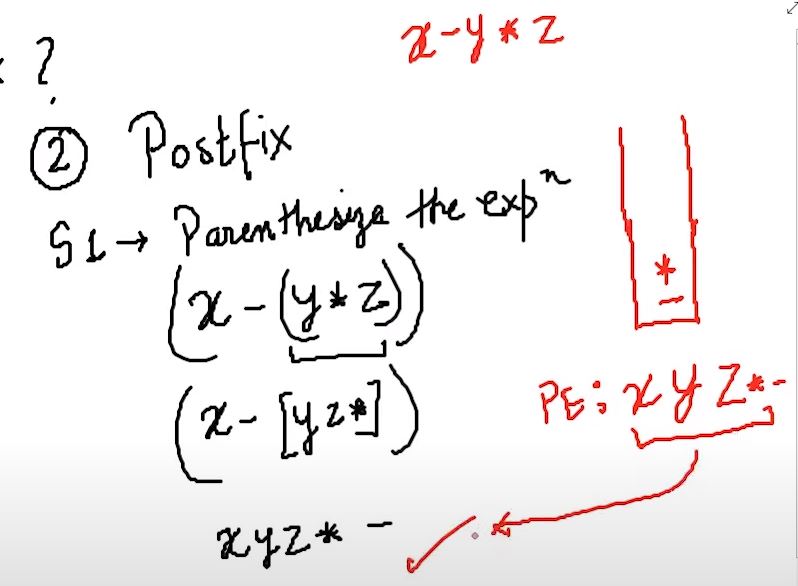 ?
② Postfix
S1 → Parenthesize the expⁿ
(x - (y * z))
(x - [y z *])
x y z * -
x - y * z
*
-
PE: x y z * -